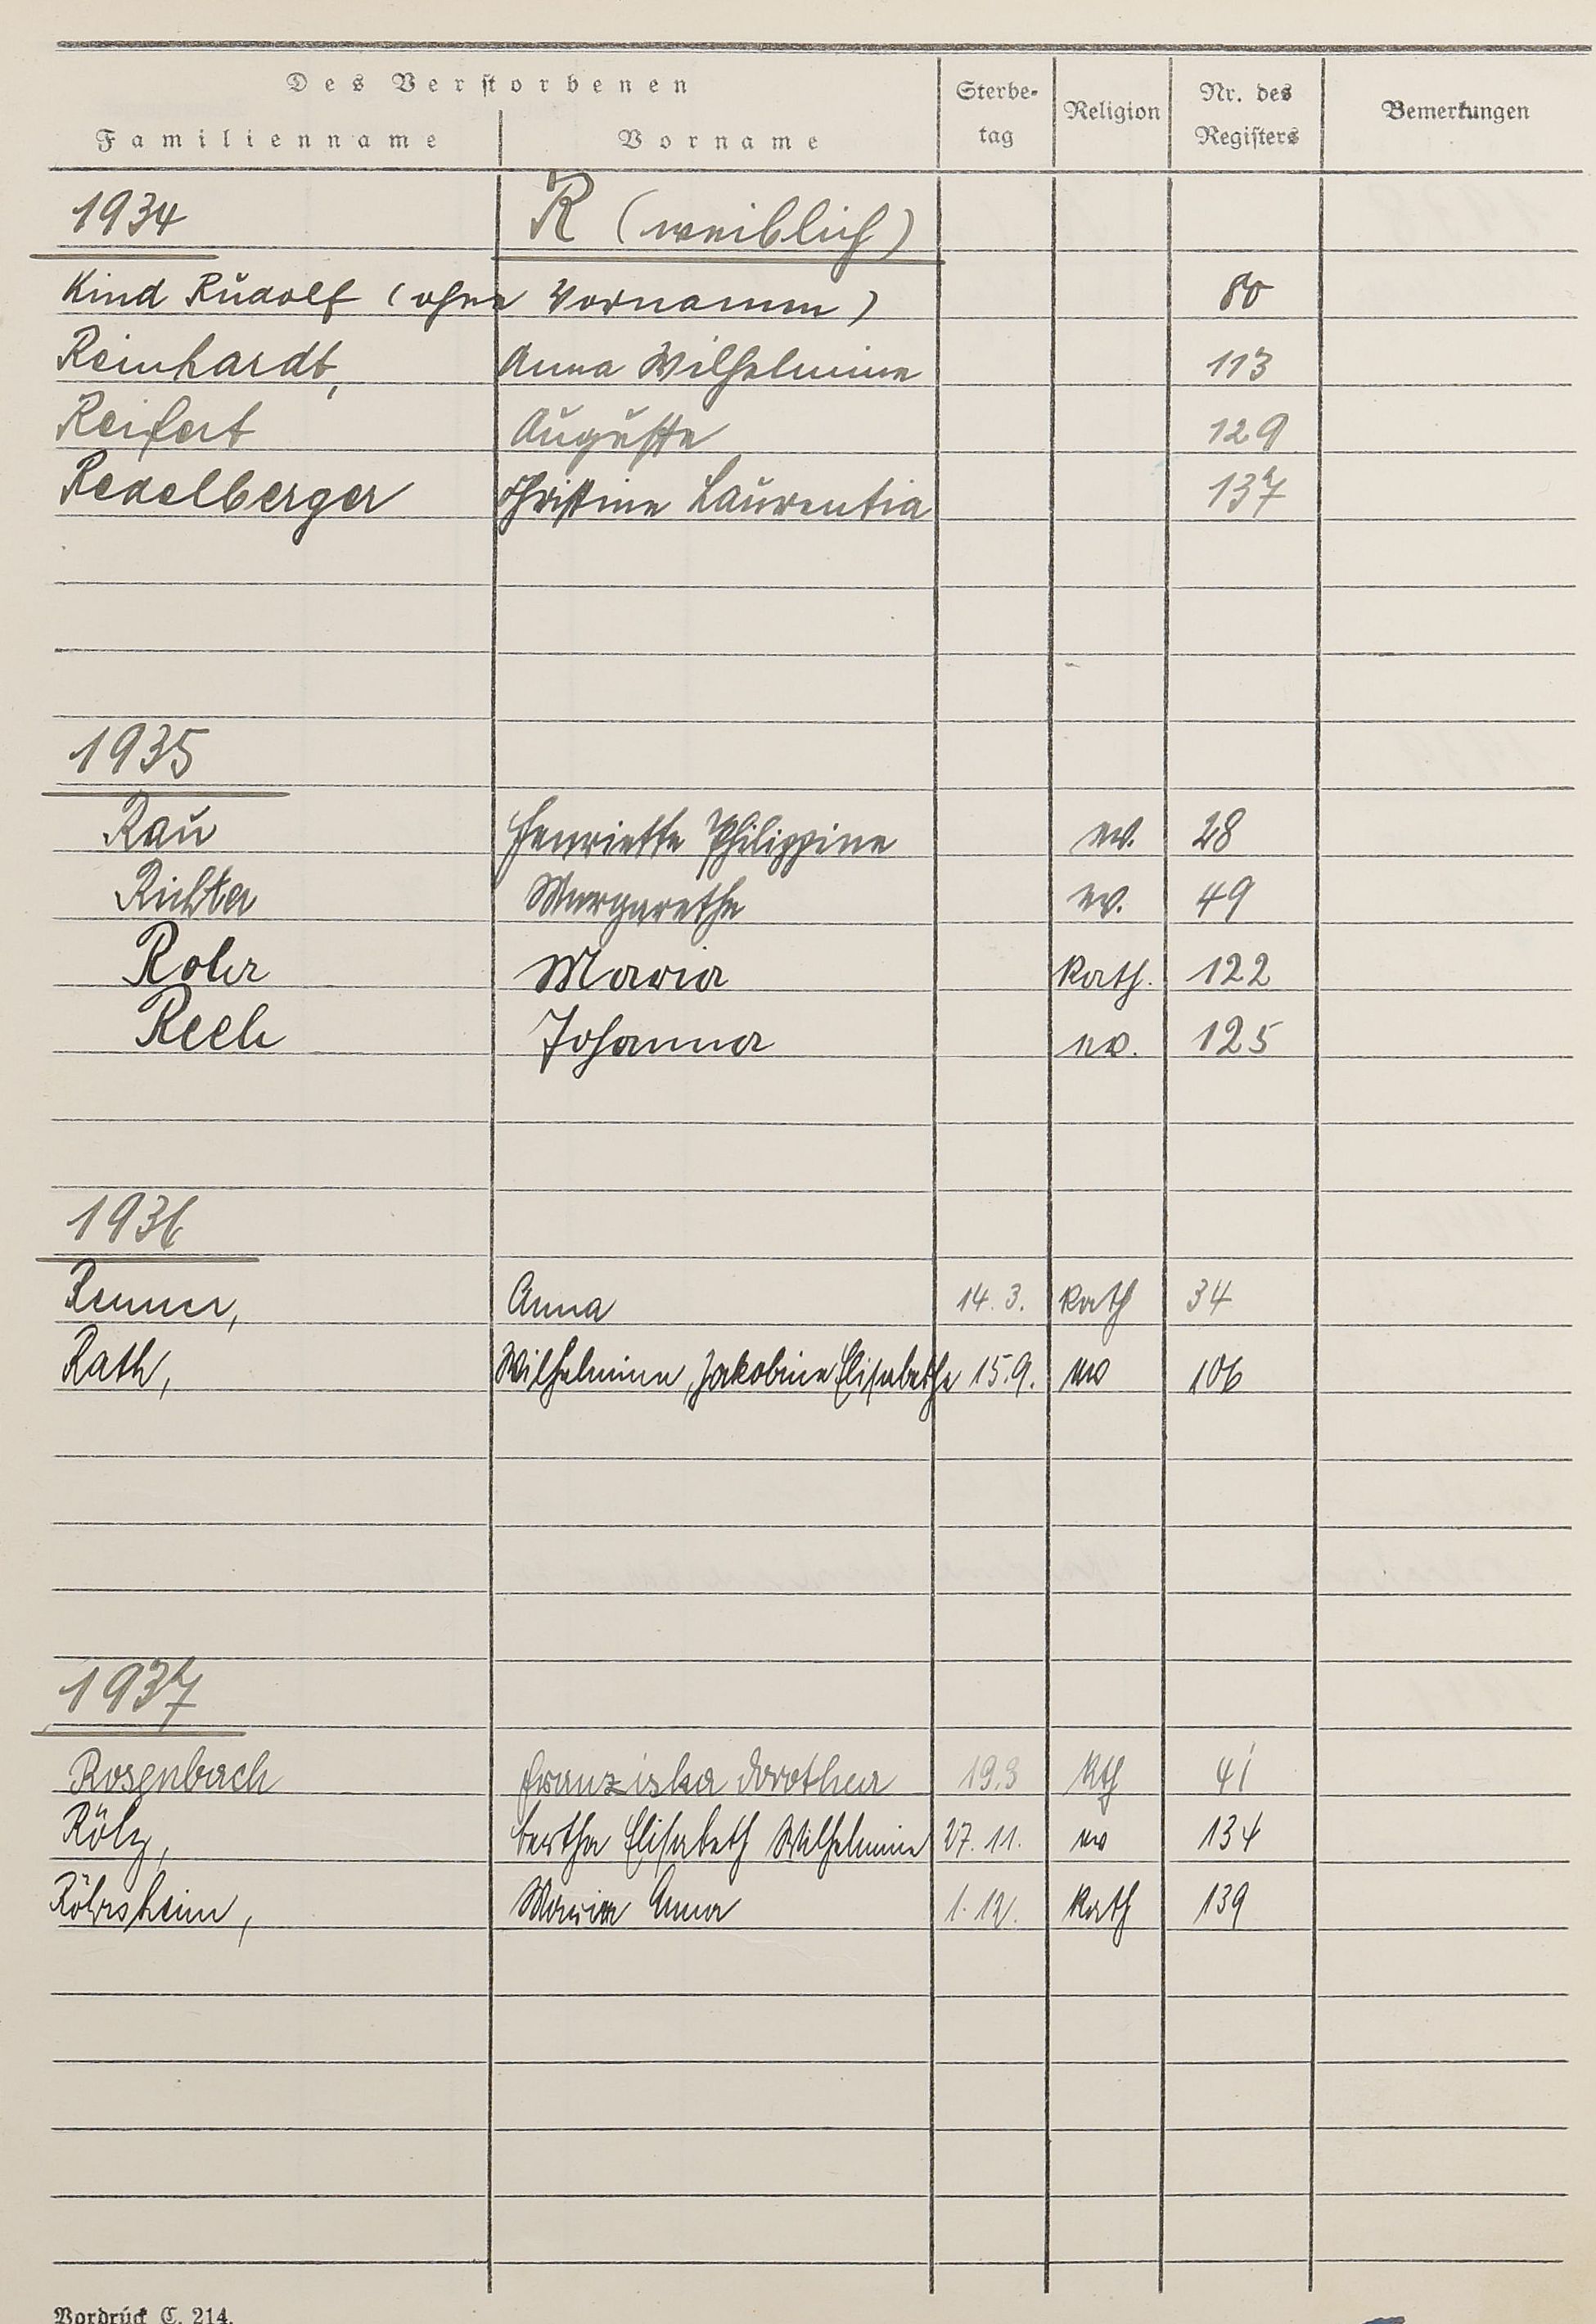 Des Verstorbenen
Familienname Vorname Sterbe-tag Religion Nr. des Registers Bemerkungen
1934 R (weiblich)
Kind Rudolf (ohne Vornamen) 80
Reinhardt, Anna Wilhelmine 113
Reifert Auguste 129
Redelberger Christine Laurentia 137
1935
Rau Henriette Philippine ev. 28
Richter Margarethe ev. 49
Rohr Maria Kath. 122
Reeh Johanna ev. 125
1936
Renner, Anna 14.3. Kath 34
Rath, Wilhelmine, Jakobine Elisabethe 15.9. ev 106
1937
Rosenbach Franziska Dorothea 19.3 Kth 41
Rölz, Bertha Elisabeth Wilhelmine 27.11. ev 134
Röhrsheim, Maria Anna 1.12. Kath 139
Vordruck C. 214.